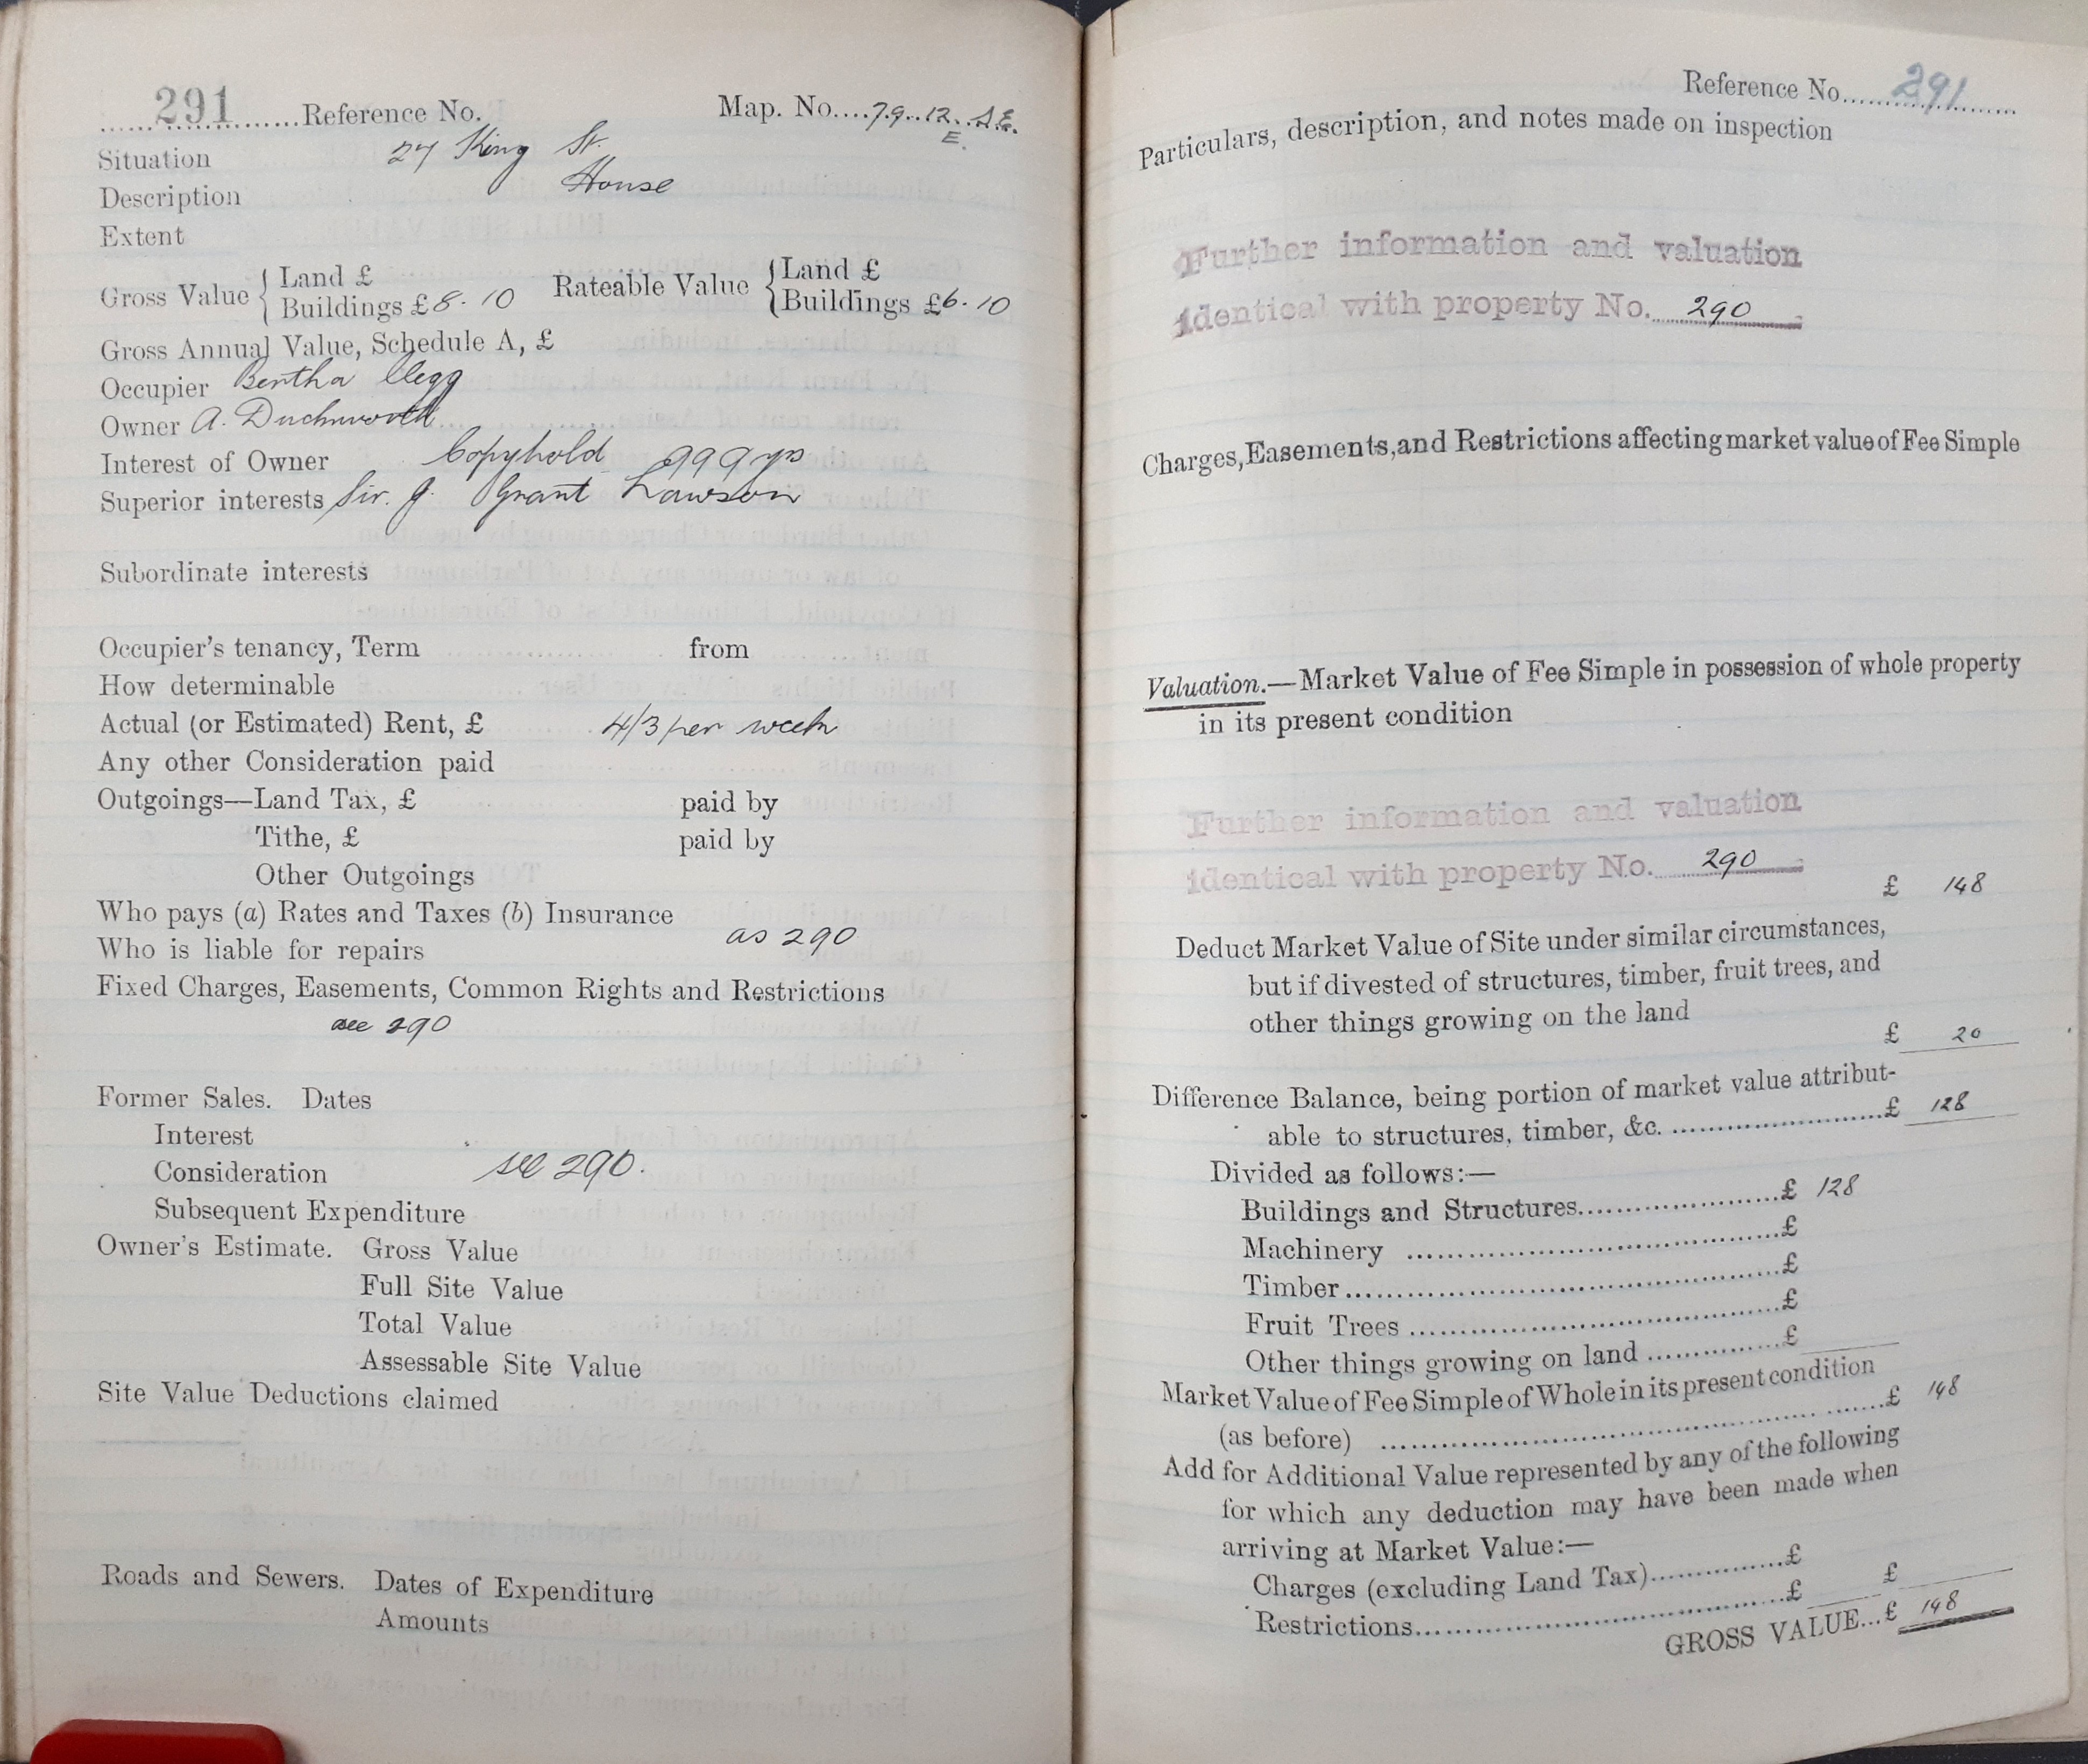 291 Reference No. Map. No. 79. 12. S.E.
E.
Situation 27 King St.
Description House
Extent
Gross Value { Land £ Rateable Value { Land £
Buildings £ 8. 10 Buildings £ 6. 10
Gross Annual Value, Schedule A, £
Occupier Bertha Clegg
Owner A. Duckworth
Interest of Owner Copyhold 999 yrs
Superior interests Sir. J. Grant Lawson
Subordinate interests
Occupier's tenancy, Term from
How determinable
Actual (or Estimated) Rent, £ 4/3 per week
Any other Consideration paid
Outgoings—Land Tax, £ paid by
Tithe, £ paid by
Other Outgoings
Who pays (a) Rates and Taxes (b) Insurance
as 290
Who is liable for repairs
Fixed Charges, Easements, Common Rights and Restrictions
see 290
Former Sales. Dates
Interest
Consideration see 290.
Subsequent Expenditure
Owner's Estimate. Gross Value
Full Site Value
Total Value
Assessable Site Value
Site Value Deductions claimed
Roads and Sewers. Dates of Expenditure
Amounts
Reference No. 291
Particulars, description, and notes made on inspection
Further information and valuation
identical with property No. 290
Charges, Easements, and Restrictions affecting market value of Fee Simple
Valuation.—Market Value of Fee Simple in possession of whole property
in its present condition
Further information and valuation
identical with property No. 290
£ 148
Deduct Market Value of Site under similar circumstances,
but if divested of structures, timber, fruit trees, and
other things growing on the land
£ 20
Difference Balance, being portion of market value attribut-
able to structures, timber, &c. £ 128
Divided as follows:—
Buildings and Structures £ 128
Machinery £
Timber £
Fruit Trees £
Other things growing on land £
Market Value of Fee Simple of Whole in its present condition
(as before) £ 148
Add for Additional Value represented by any of the following
for which any deduction may have been made when
arriving at Market Value:—
Charges (excluding Land Tax) £
Restrictions £ £
GROSS VALUE... £ 148